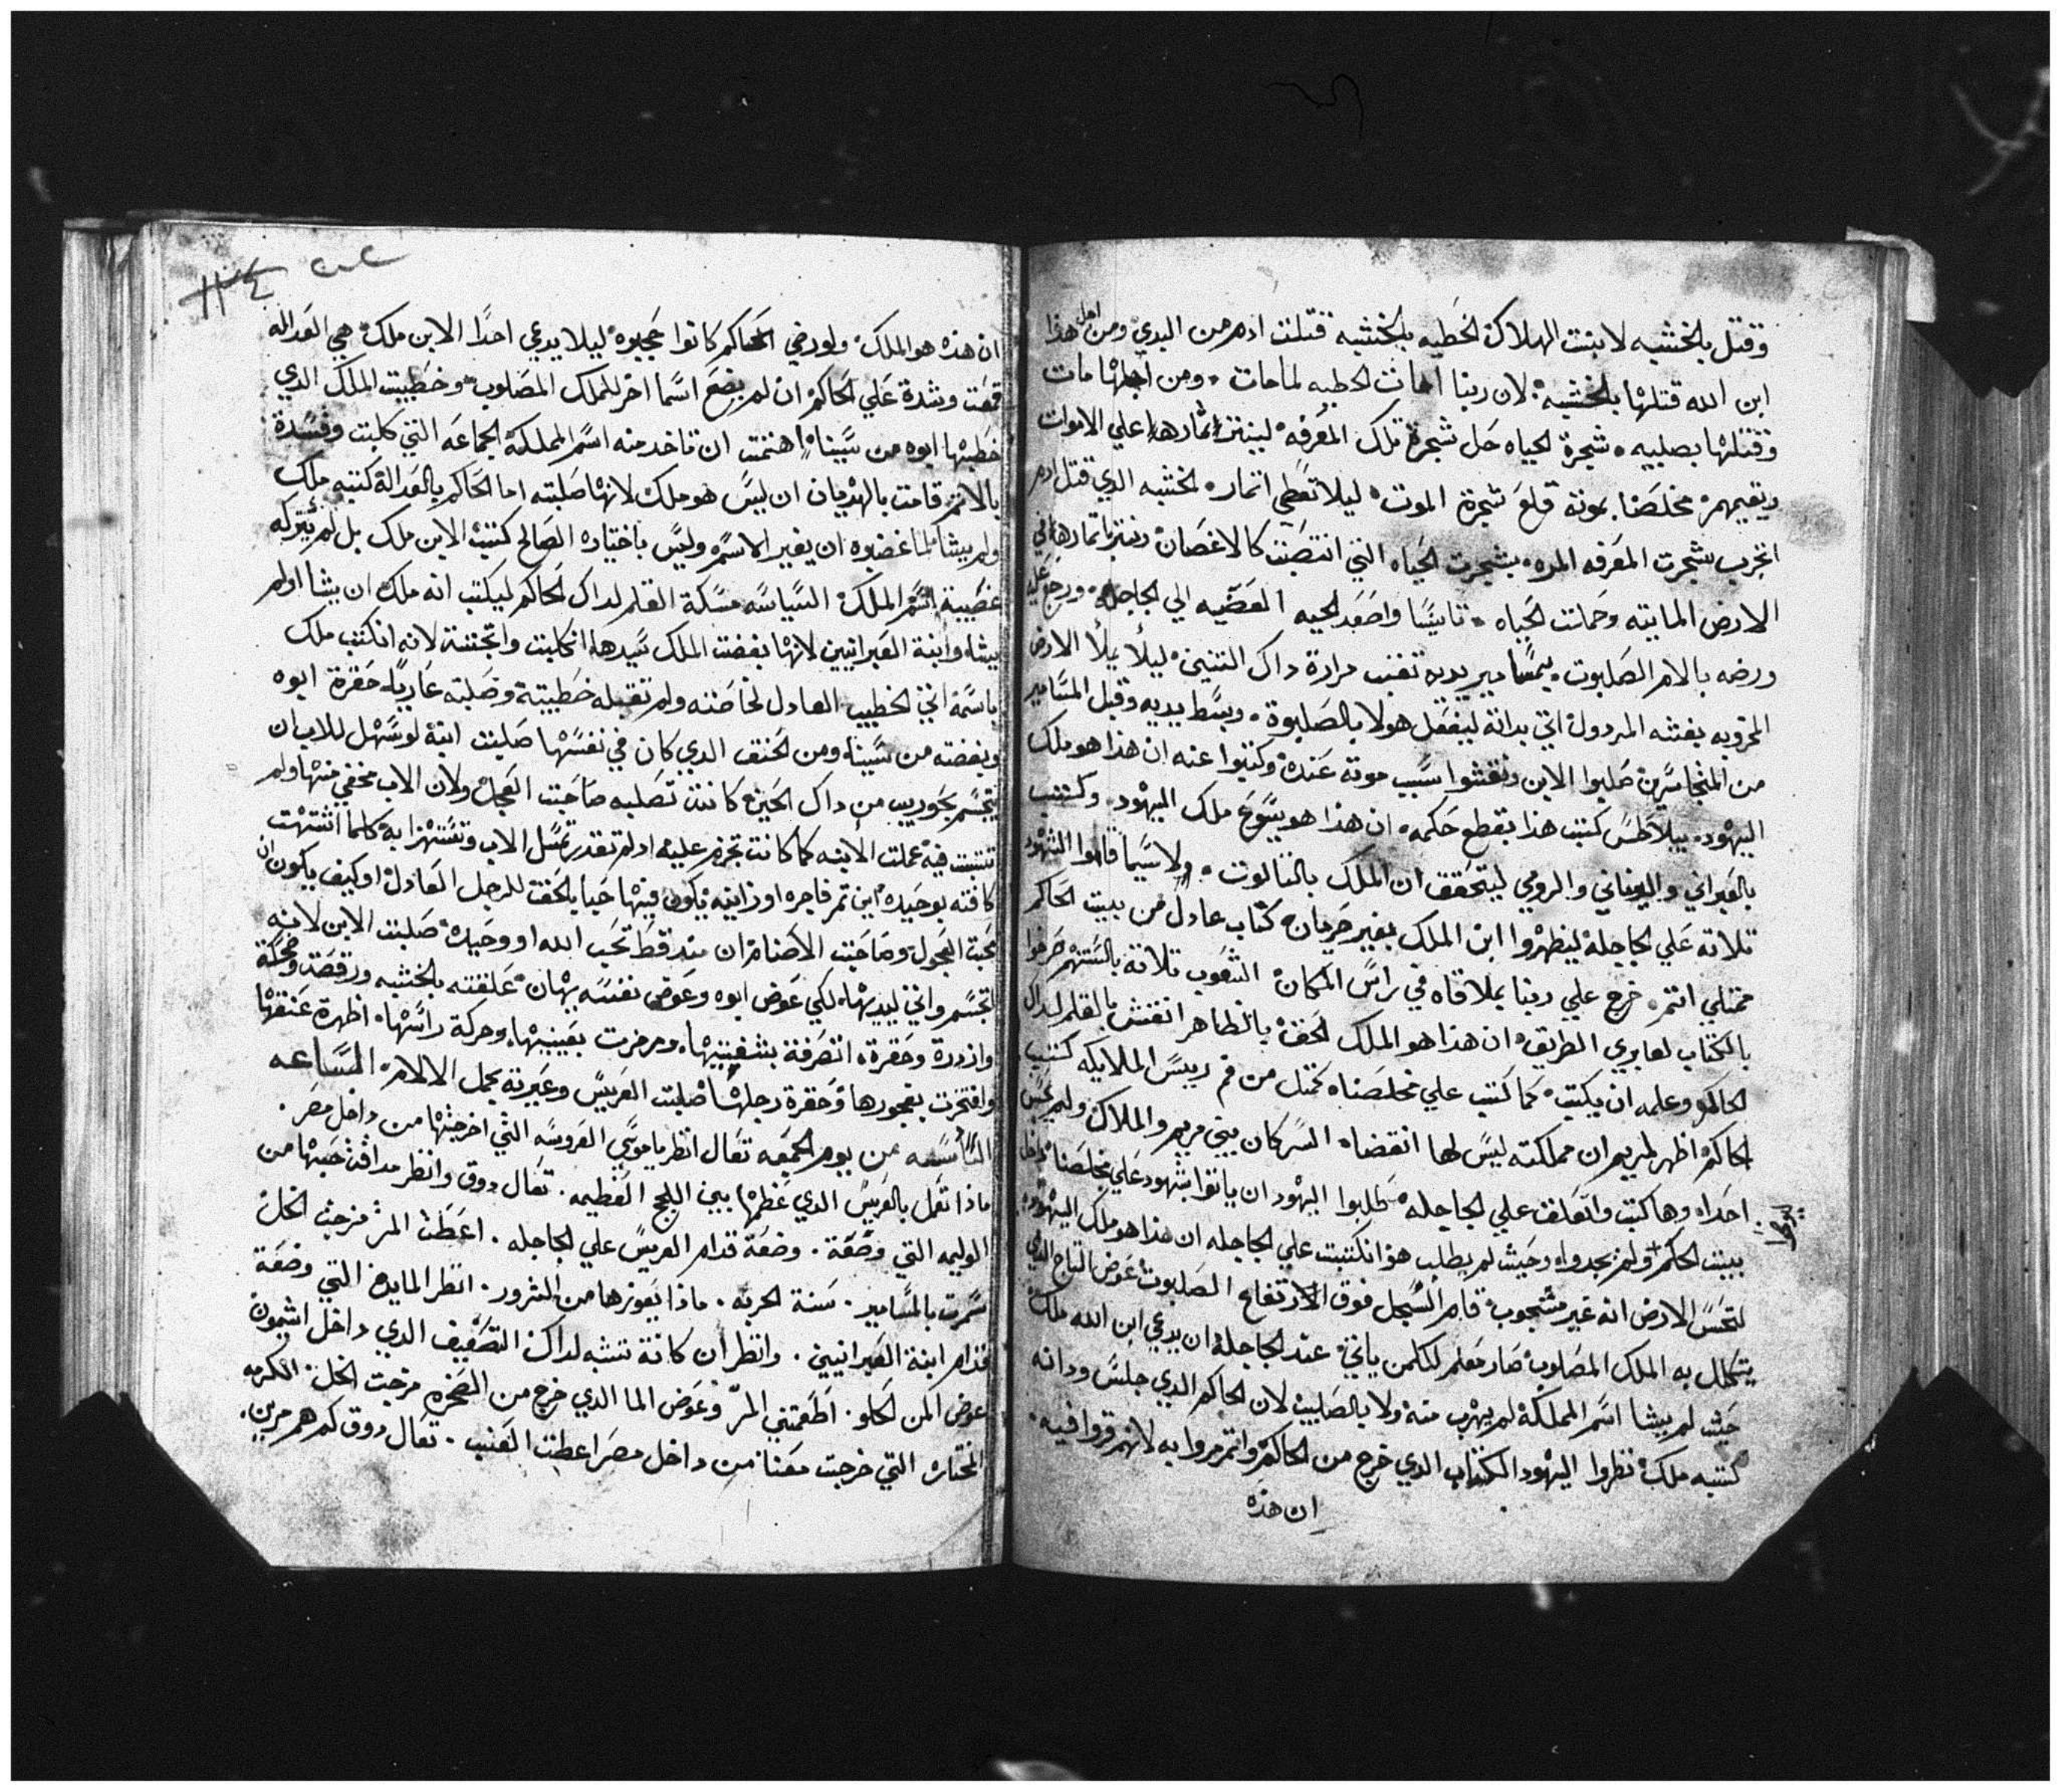 وقتل بالخشبه لابنت الهلاك الخطيه بالخشبه قتلت ادم من البدي ومن اجل هذا
ابن الله قتلها بالخشبه لان ربنا امات الخطيه لما مات ومن اجلها مات
وقتلها بصليبه شجرة الحياه حل شجرة تلك المعرفه لينتر اثمارها علي الاموات
ويقيمهم مخلصنا بموته قلع شجرة الموت ليلا تعطي اتماره الخشبه الدي قتل ادم
اتخرب شجرت المعرفه المره بشجرت الحياه التي انتصبت كالاغصان ونتر اتمارها في
الارض المايته وحملت الحياه تانيًا واصعد الحيه العصيه الي الجاجله ورجع علي
ورضه بالام الصلبوت بمسامير يديه تقنب مرارة داك التنين ليلا يملأ الارض
المخروبه بغشه المردول اتي بداته ليفعل هولا بالصلبوة وبسط يديه وقبل المسامير
من المتجاسرين صلبوا الابن ونقشوا سبب موته عنده وكتبوا عنه ان هذا هو ملك
اليهود بيلاطس كتب هذا بقطع حكمه ان هذا هو يسوع ملك اليهود وكتب
بالعبراني واليوناني والرومي ليتحقق ان الملك بالتالوت ولاسيما قاموا الشهود
تلاته علي الجاجلة ليظهروا ابن الملك بغير حرمان كتاب عادل من بيت الحاكم
ممتلي انتم خرج علي ربنا بملاقاه في راس المكان الشعوب تلاتة بالسنتهم صرخوا
بالكتاب لعابري الطريق ان هذا هو الملك الحق بالظاهر انقش بالقلم لداك
الحاكم وعلمه ان يكتب كما كتب علي مخلصنا كمتل من فم رييس الملايكه كتب
الحاكم اظهر لمريم ان مملكته ليس لها انقضاء السر كان بين مريم والملاك ولم يحس
احدا وها كتب واتعلق علي الجاجله طلبوا اليهود ان ياتوا شهود علي مخلصنا داخل
بيت الحكم ولم يجدوا وحيث لم يطلب هو انكتبت علي الجاجله ان هذا هو ملك اليهود
لتحس الارض انه غير مشجوب قام السجل فوق الارتفاع الصلبوت عوض التاج الدي
يتكلل به الملك المصلوب صار معلم لكلمن ياتي عند الجاجلة ان يدعي ابن الله ملك
حيث لم يشا اسم المملكة لم يهرب منه ولا بالصليب لان الحاكم الدي جلس ودانه
كتبه ملك نظروا اليهود الكتاب الدي خرج من الحاكم واتمرمروا به لانهم قروا فيه
ان هذه
ان هذه هو الملك ولو رضي الحاكم كانوا حجبوه ليلا يدعي احدًا الابن ملك هي العداله
قمعت وشدة علي الحاكم ان لم يضع اسما اخر للملك المصلوب وخطبيت الملك الدي
خطبها ابوه من سينا اهتمت ان تاخد منه اسم المملكة الجماعه التي كلبت وفسدة
بالاتم قامت بالهديان ان ليس هو ملك لانها صلبته اما الحاكم بالعدالة كتبه ملك
ولم يشا لما غضبوه ان يغير الاسم وليس باختياره الصالح كتب الابن ملك بل لم يتركه
غصبية اسم الملك السياسه مسكة القلم لداك الحاكم ليكتب انه ملك ان يشا اولم
يشا وابنة العبرانيين لانها بغضت الملك سيدها انكلبت واتجننة لانه انكتب ملك
باسمه اتي الخطيب العادل لخاصته ولم تقبله خطيبتة وصلبته عاريا حقرة ابوه
وبغضته من سينا ومن الحنق الدي كان في نفسها صلبت ابنة لو سهل للاب ان
يتجسم بجوريب من داك الحين كانت تصلبه صاحبت العجل ولان الاب مخفي منها ولم
تتبت فيه عملت الابنه كما كانت تجزم عليه ادلم تقدر تمسل الاب وتستهزا به كلما اشتهت
كافته بوحيده اين تم فاجره او زانيه يكون فيها حبا بالحق للرجل العادل او كيف يكون ان
محبت العجول وصاحبت الاصنام ان متد قط تحب الله او وحيده صلبت الابن لانه
اتجسم واتي ليديها لكي عوض ابوه وعوض نفسه يهان علقته بالخشبه ورقصت وضحكة
وازدرة وحقرة اتصرفة بشفتيها ومرمرت بعينيها وحركة راسها اظهرة عنقها
وافتخرت بفجورها وحقرة رجلها صلبت العريس وعيرته بحمل الالام الساعه
التاسعه من يوم الجمعه تعال انظر يا موسي العروسه التي اخرجتها من داخل مصر
ماذا تعمل بالعريس الدي عظمها بين اللجج العظيمه تعال دوق وانظر مداقة حبها من
الوليمه التي وضعة وضعة قدام العريس علي الجاجله اعطت المر مزجت الخل
سمرت بالمسامير سنة الحربه ماذا يعوزها من الشرور انظر المايده التي وضعة
قدام ابنة العبرانيين وانظر ان كانة تشبه لداك التضعيف الدي داخل اشمون
عوض المن الحلو اطعمتني المر وعوض الما الدي خرج من الصخره مزجت الخل الكرمه
المختاره التي خرجت معنا من داخل مصر اعطت العنب تعال دوق كم هم مرين